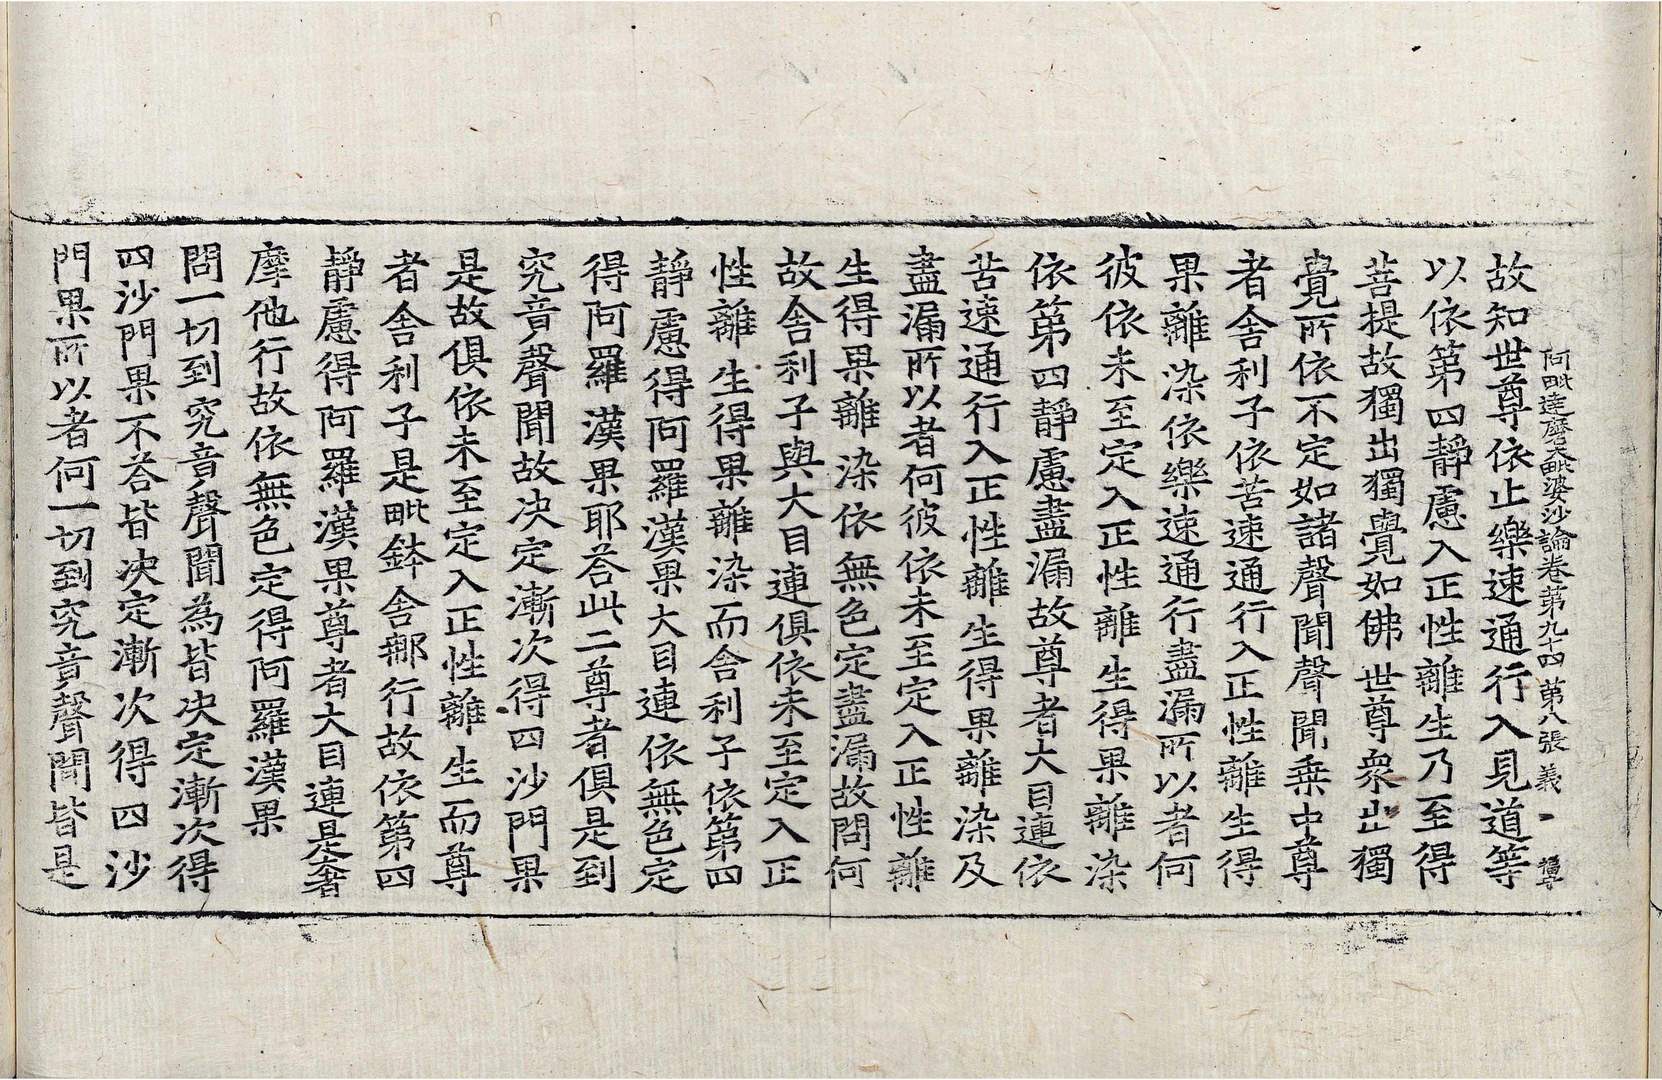 阿毗達磨大毗婆沙論卷第九十四 第八張 義
故知世尊依止樂速通行入見道等
以依第四靜慮入正性離生乃至得
菩提故獨出獨覺如佛世尊衆出獨
覺所依不定如諸聲聞聲聞乗中尊
者舍利子依苦速通行入正性離生得
果離染依樂速通行盡漏所以者何
彼依未至定入正性離生得果離染
依第四靜慮盡漏故尊者大目連依
苦速通行入正性離生得果離染及
盡漏所以者何彼依未至定入正性離
生得果離染依無色定盡漏故問何
故舍利子與大目連俱依未至定入正
性離生得果離染而舍利子依第四
靜慮得阿羅漢果大目連依無色定
得阿羅漢果耶荅此二尊者俱是到
究音聲聞故决定漸次得四沙門果
是故俱依未至定入正性離生而尊
者舍利子是毗鉢舍那行故依第四
靜慮得阿羅漢果尊者大目連是奢
摩他行故依無色定得阿羅漢果
問一切到究音聲聞為皆决定漸次得
四沙門果不荅皆决定漸次得四沙
門果所以者何一切到究音聲聞皆是